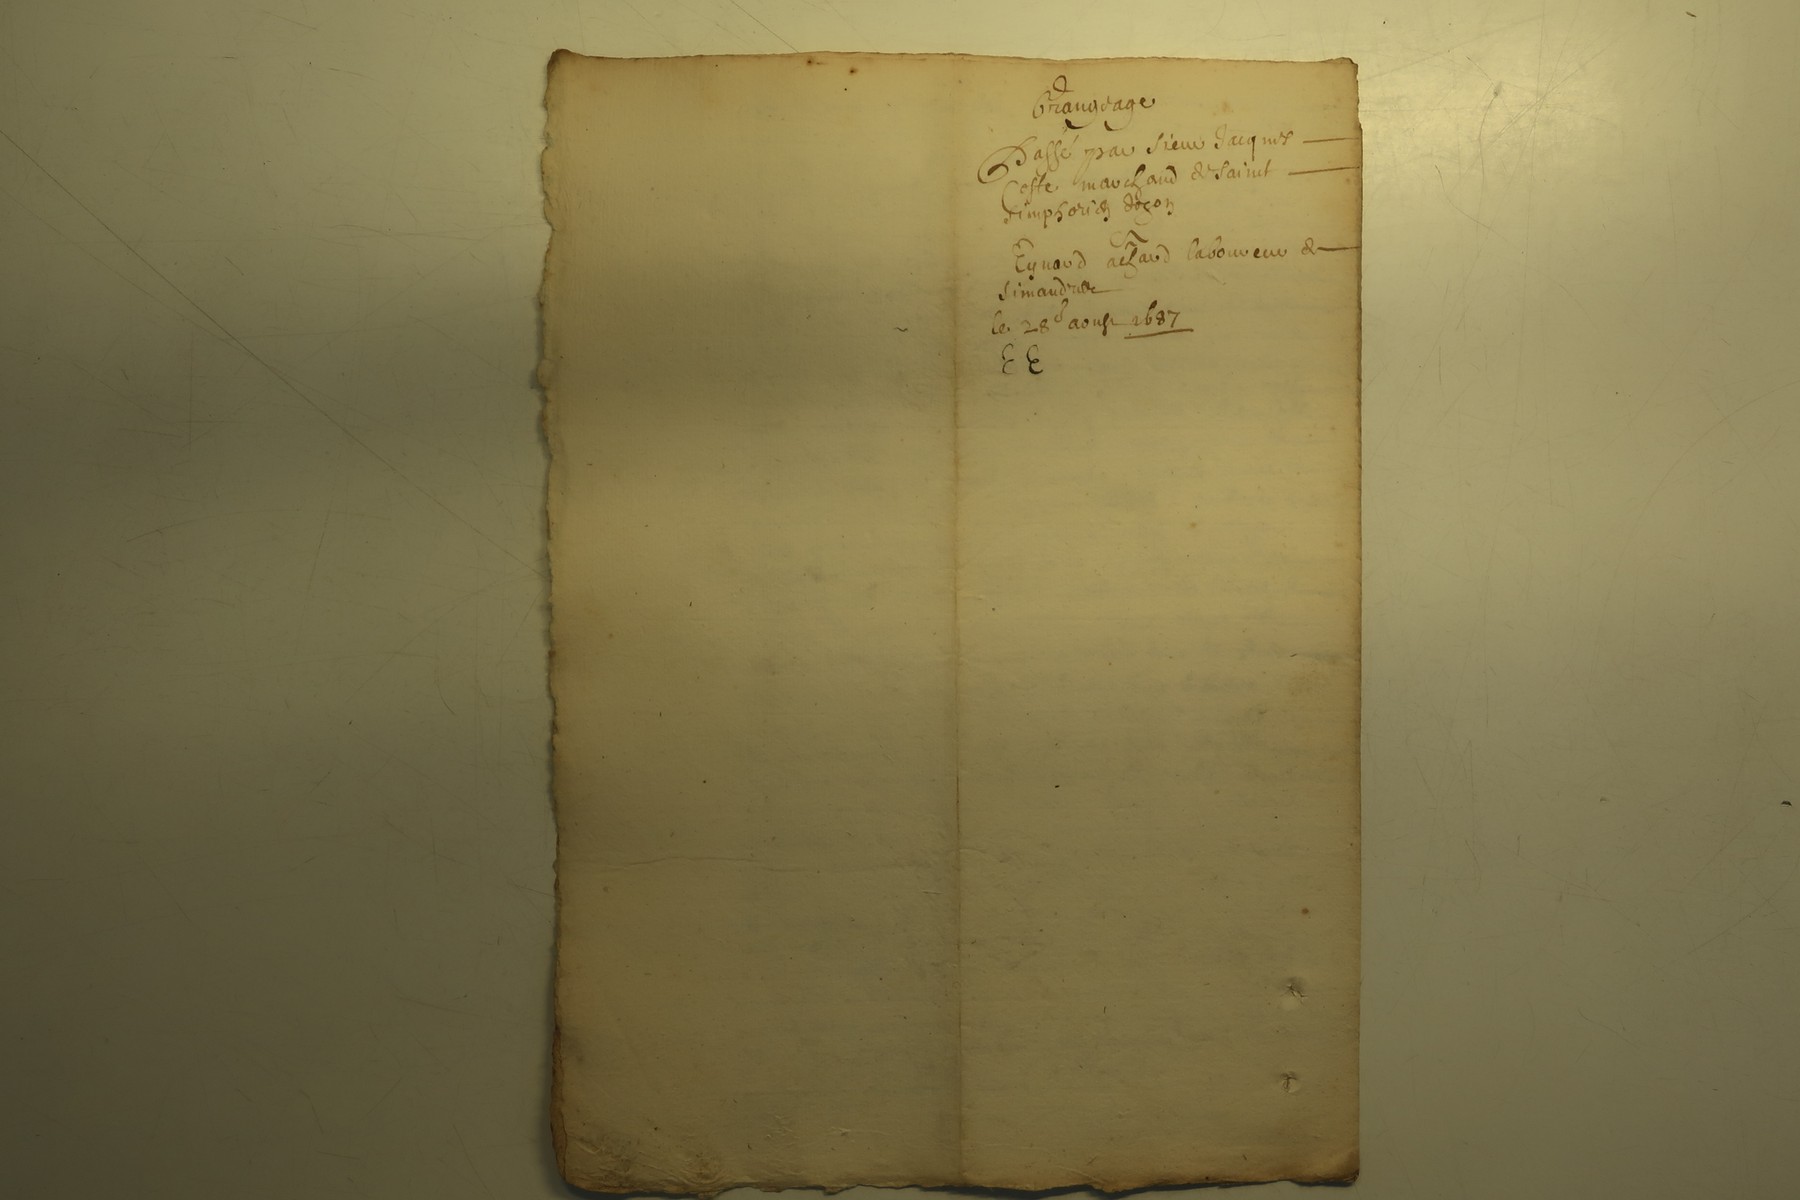 Grangeage
Passé par sieur Jacques
Coste marchand de Saint
Simphorien dozon
A
Eynard achard laboureur de
Simandres
le 28e aoust 1687
EE